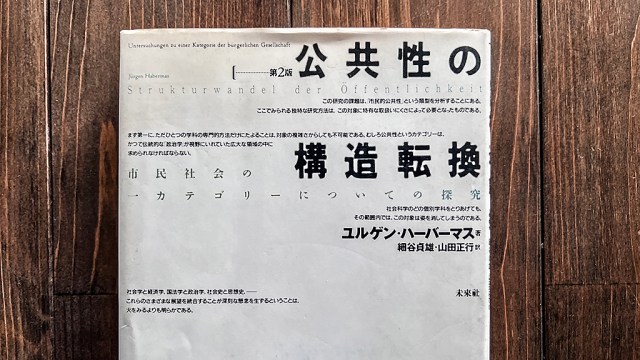 Untersuchungen zu einer Kategorie der bürgerlichen Gesellschaft
公共性の
第2版
Jürgen Habermas
Strukturwandel der Öffentlichkeit
この研究の課題は、「市民的公共性」という類型を分析することにある。
ここでみられる独特な研究方法は、この対象に特有な取扱いにくさによって必要となったものである。
まず第一に、ただひとつの学科の専門的方法だけにたよることは、対象の複雑さからしても不可能である。むしろ公共性というカテゴリーは、
かつて伝統的な「政治学」が視野にいれていた広大な領域の中に
求められなければならない。
構造転換
市民社会の
一カテゴリーについての探究
社会科学のどの個別学科をとりあげても、
その範囲内では、この対象は姿を消してしまうのである。
ユルゲン・ハーバーマス 著
細谷貞雄・山田正行 訳
社会学と経済学、国法学と政治学、社会史と思想史、——
これらのさまざまな展望を統合することが深刻な懸念を生ずるということは、
火をみるよりも明らかである。
未來社